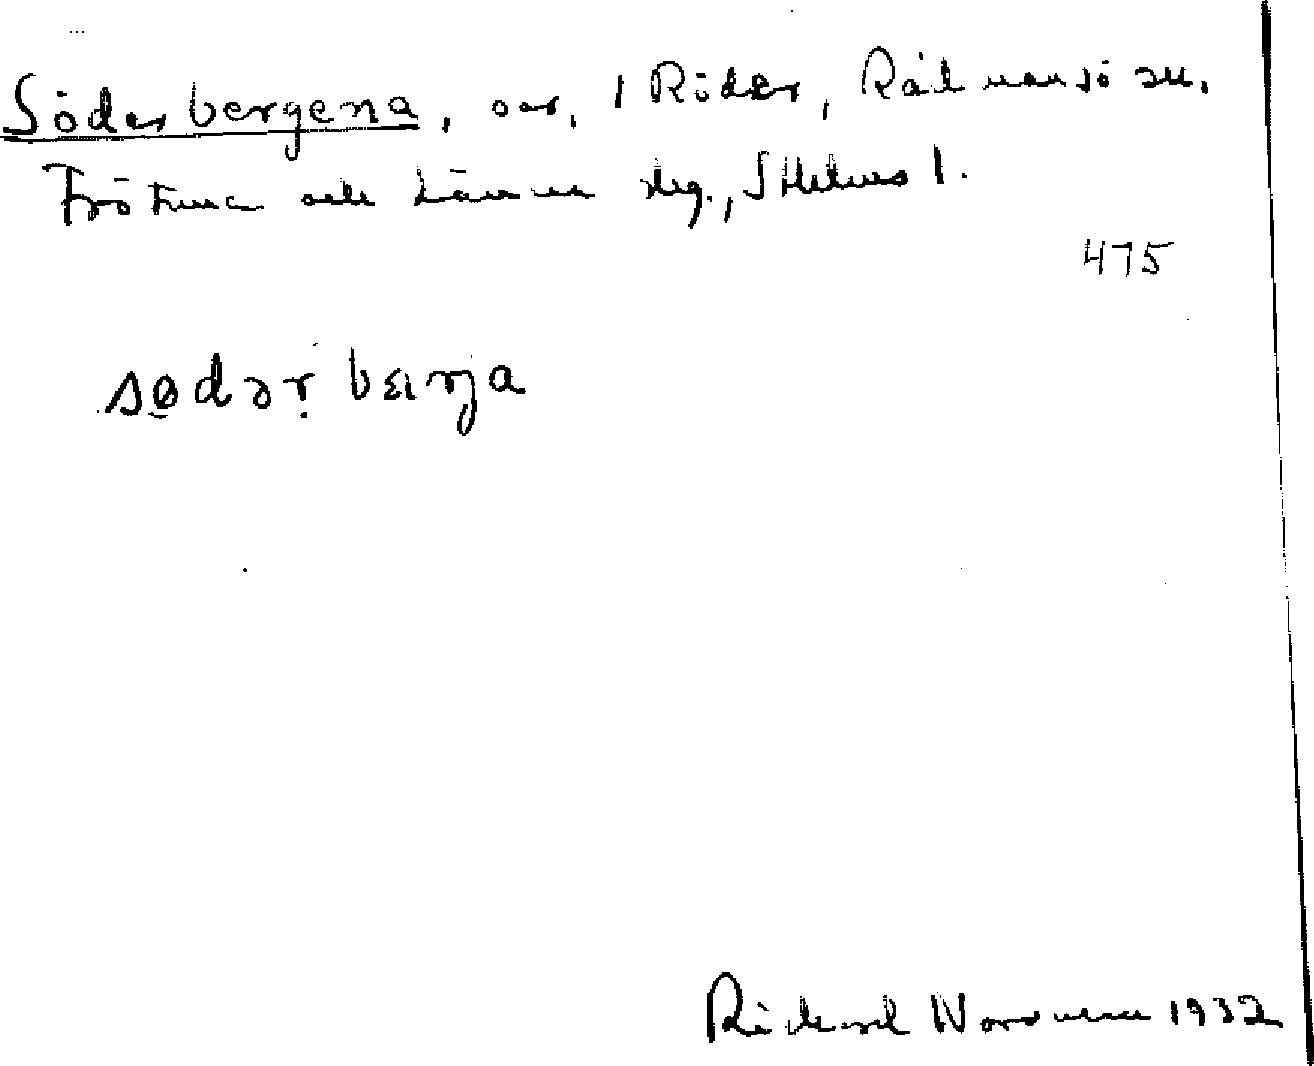 Söderbergena, öar, i Röder, Rådmansö sn.
Frötuna och Länna slg., Sthlms l.
475
sødər bærja
Rickard Norrman 1932